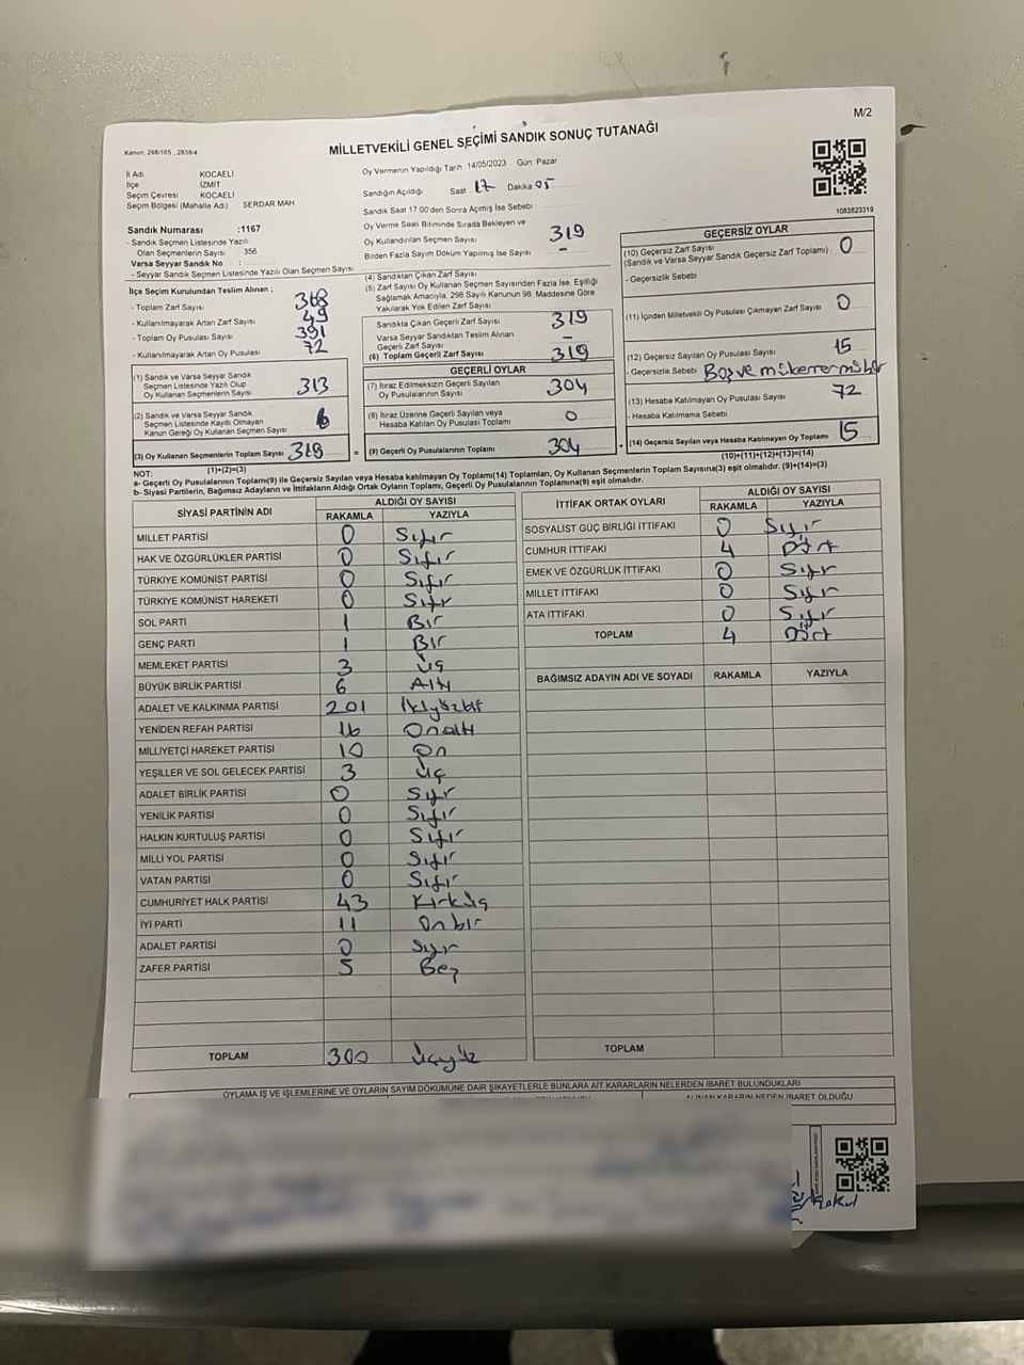 M/2
Kanun: 298/105
MİLLETVEKİLİ GENEL SEÇİMİ SANDIK SONUÇ TUTANAĞI
İl Adı KOCAELİ
İlçe İZMİT
Seçim Çevresi KOCAELİ
Seçim Bölgesi (Mahalle Adı) SERDAR MAH
Sandık Numarası :1167
- Sandık Seçmen Listesinde Yazılı
Olan Seçmenlerin Sayısı 356
Varsa Seyyar Sandık No :
- Seyyar Sandık Seçmen Listesinde Yazılı Olan Seçmen Sayısı
Oy Vermenin Yapıldığı Tarih 14/05/2023 Gün: Pazar
Sandığın Açıldığı Saat 17 Dakika 05
Sandık Saat 17:00'den Sonra Açılmış İse Sebebi
Oy Verme Saati Bitiminde Sırada Bekleyen ve
Oy Kullandırılan Seçmen Sayısı 319
Birden Fazla Sayım Döküm Yapılmış İse Sayısı -
1083823319
İlçe Seçim Kurulundan Teslim Alınan ;
- Toplam Zarf Sayısı 368
- Kullanılmayarak Artan Zarf Sayısı 49
- Toplam Oy Pusulası Sayısı 391
- Kullanılmayarak Artan Oy Pusulası 72
(1) Sandık ve Varsa Seyyar Sandık
Seçmen Listesinde Yazılı Olup
Oy Kullanan Seçmenlerin Sayısı 313
(2) Sandık ve Varsa Seyyar Sandık
Seçmen Listesinde Kayıtlı Olmayan
Kanun Gereği Oy Kullanan Seçmen Sayısı 6
(3) Oy Kullanan Seçmenlerin Toplam Sayısı 319
(1)+(2)=(3)
(4) Sandıktan Çıkan Zarf Sayısı
(5) Zarf Sayısı Oy Kullanan Seçmen Sayısından Fazla İse, Eşitliği
Sağlamak Amacıyla, 298 Sayılı Kanunun 98. Maddesine Göre
Yakılarak Yok Edilen Zarf Sayısı
Sandıkta Çıkan Geçerli Zarf Sayısı 319
Varsa Seyyar Sandıktan Teslim Alınan
Geçerli Zarf Sayısı -
(6) Toplam Geçerli Zarf Sayısı 319
GEÇERLİ OYLAR
(7) İtiraz Edilmeksizin Geçerli Sayılan
Oy Pusulalarının Sayısı 304
(8) İtiraz Üzerine Geçerli Sayılan veya
Hesaba Katılan Oy Pusulası Toplamı 0
= (9) Geçerli Oy Pusulalarının Toplamı 304
GEÇERSİZ OYLAR
(10) Geçersiz Zarf Sayısı 0
(Sandık ve Varsa Seyyar Sandık Geçersiz Zarf Toplamı)
- Geçersizlik Sebebi
(11) İçinden Milletvekili Oy Pusulası Çıkmayan Zarf Sayısı 0
(12) Geçersiz Sayılan Oy Pusulası Sayısı 15
- Geçersizlik Sebebi Boş ve mükerrer mühür
(13) Hesaba Katılmayan Oy Pusulası Sayısı 72
- Hesaba Katılmama Sebebi
+ (14) Geçersiz Sayılan veya Hesaba Katılmayan Oy Toplamı 15
(10)+(11)+(12)+(13)=(14)
NOT:
a- Geçerli Oy Pusulalarının Toplamı(9) ile Geçersiz Sayılan veya Hesaba katılmayan Oy Toplamı(14) Toplamları, Oy Kullanan Seçmenlerin Toplam Sayısına(3) eşit olmalıdır. (9)+(14)=(3)
b- Siyasi Partilerin, Bağımsız Adayların ve İttifakların Aldığı Ortak Oyların Toplamı, Geçerli Oy Pusulalarının Toplamına(9) eşit olmalıdır.
SİYASİ PARTİNİN ADI ALDIĞI OY SAYISI
RAKAMLA YAZIYLA
MİLLET PARTİSİ 0 Sıfır
HAK VE ÖZGÜRLÜKLER PARTİSİ 0 Sıfır
TÜRKİYE KOMÜNİST PARTİSİ 0 Sıfır
TÜRKİYE KOMÜNİST HAREKETİ 0 Sıfır
SOL PARTİ 1 Bir
GENÇ PARTİ 1 Bir
MEMLEKET PARTİSİ 3 Üç
BÜYÜK BİRLİK PARTİSİ 6 Altı
ADALET VE KALKINMA PARTİSİ 201 İkiyüzbir
YENİDEN REFAH PARTİSİ 16 Onaltı
MİLLİYETÇİ HAREKET PARTİSİ 10 On
YEŞİLLER VE SOL GELECEK PARTİSİ 3 Üç
ADALET BİRLİK PARTİSİ 0 Sıfır
YENİLİK PARTİSİ 0 Sıfır
HALKIN KURTULUŞ PARTİSİ 0 Sıfır
MİLLİ YOL PARTİSİ 0 Sıfır
VATAN PARTİSİ 0 Sıfır
CUMHURİYET HALK PARTİSİ 43 Kırküç
İYİ PARTİ 11 Onbir
ADALET PARTİSİ 0 Sıfır
ZAFER PARTİSİ 5 Beş
TOPLAM 300 Üçyüz
İTTİFAK ORTAK OYLARI ALDIĞI OY SAYISI
RAKAMLA YAZIYLA
SOSYALİST GÜÇ BİRLİĞİ İTTİFAKI 0 Sıfır
CUMHUR İTTİFAKI 4 Dört
EMEK VE ÖZGÜRLÜK İTTİFAKI 0 Sıfır
MİLLET İTTİFAKI 0 Sıfır
ATA İTTİFAKI 0 Sıfır
TOPLAM 4 Dört
BAĞIMSIZ ADAYIN ADI VE SOYADI RAKAMLA YAZIYLA
TOPLAM
OYLAMA İŞ VE İŞLEMLERİNE VE OYLARIN SAYIM DÖKÜMÜNE DAİR ŞİKAYETLERLE BUNLARA AİT KARARLARIN NELERDEN İBARET BULUNDUKLARI
ALINAN KARARIN NEDEN İBARET OLDUĞU